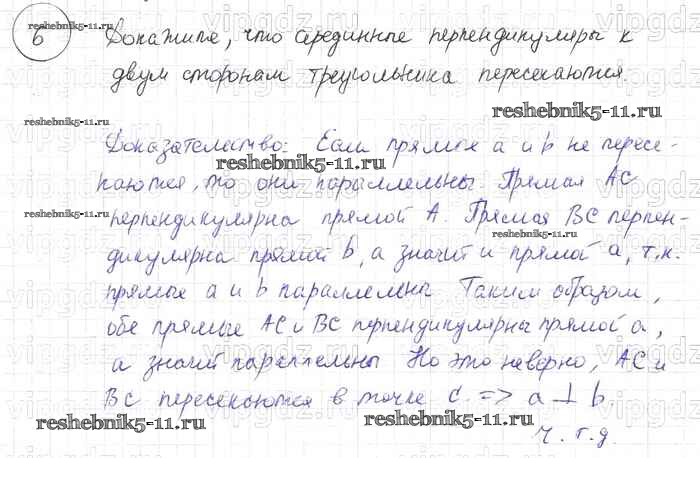 reshebnik5-11.ru
6 Докажите, что серединные перпендикуляры к
двум сторонам треугольника пересекаются.
reshebnik5-11.ru
reshebnik5-11.ru
Доказательство: Если прямые a и b не пересе-
reshebnik5-11.ru
каются, то они параллельны. Прямая AC
reshebnik5-11.ru
перпендикулярна прямой A. Прямая BC перпен-
reshebnik5-11.ru
дикулярна прямой b, а значит и прямой a, т.к.
прямые a и b параллельны Таким образом,
обе прямые AC и BC перпендикулярны прямой a,
а значит параллельны Но это неверно, AC и
BC пересекаются в точке C. => a ⊥ b.
reshebnik5-11.ru
reshebnik5-11.ru
ч.т.д.